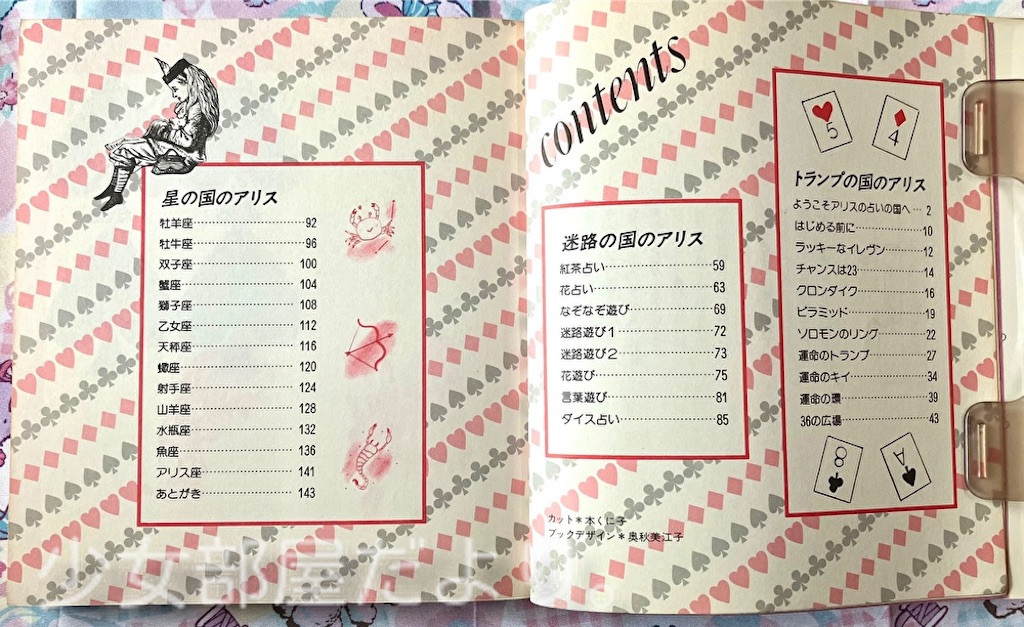 contents
トランプの国のアリス
ようこそアリスの占いの国へ… 2
はじめる前に……………10
ラッキーなイレヴン………12
チャンスは23……………14
クロンダイク……………16
ピラミッド……………19
ソロモンのリング…………22
運命のトランプ……………27
運命のキイ……………34
運命の環……………39
36の広場……………43
5
4
8
A
迷路の国のアリス
紅茶占い……………59
花占い……………63
なぞなぞ遊び……………69
迷路遊び1……………72
迷路遊び2……………73
花遊び……………75
言葉遊び……………81
ダイス占い……………85
カット＊本くに子
ブックデザイン＊奥秋美江子
星の国のアリス
牡羊座……………92
牡牛座……………96
双子座……………100
蟹座……………104
獅子座……………108
乙女座……………112
天秤座……………116
蠍座……………120
射手座……………124
山羊座……………128
水瓶座……………132
魚座……………136
アリス座……………141
あとがき……………143
少女部屋だより